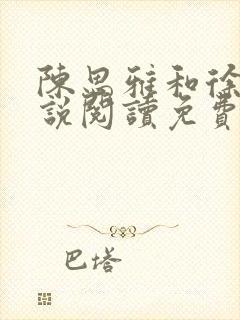 陳思雅和徐
說閱讀免費
巴塔